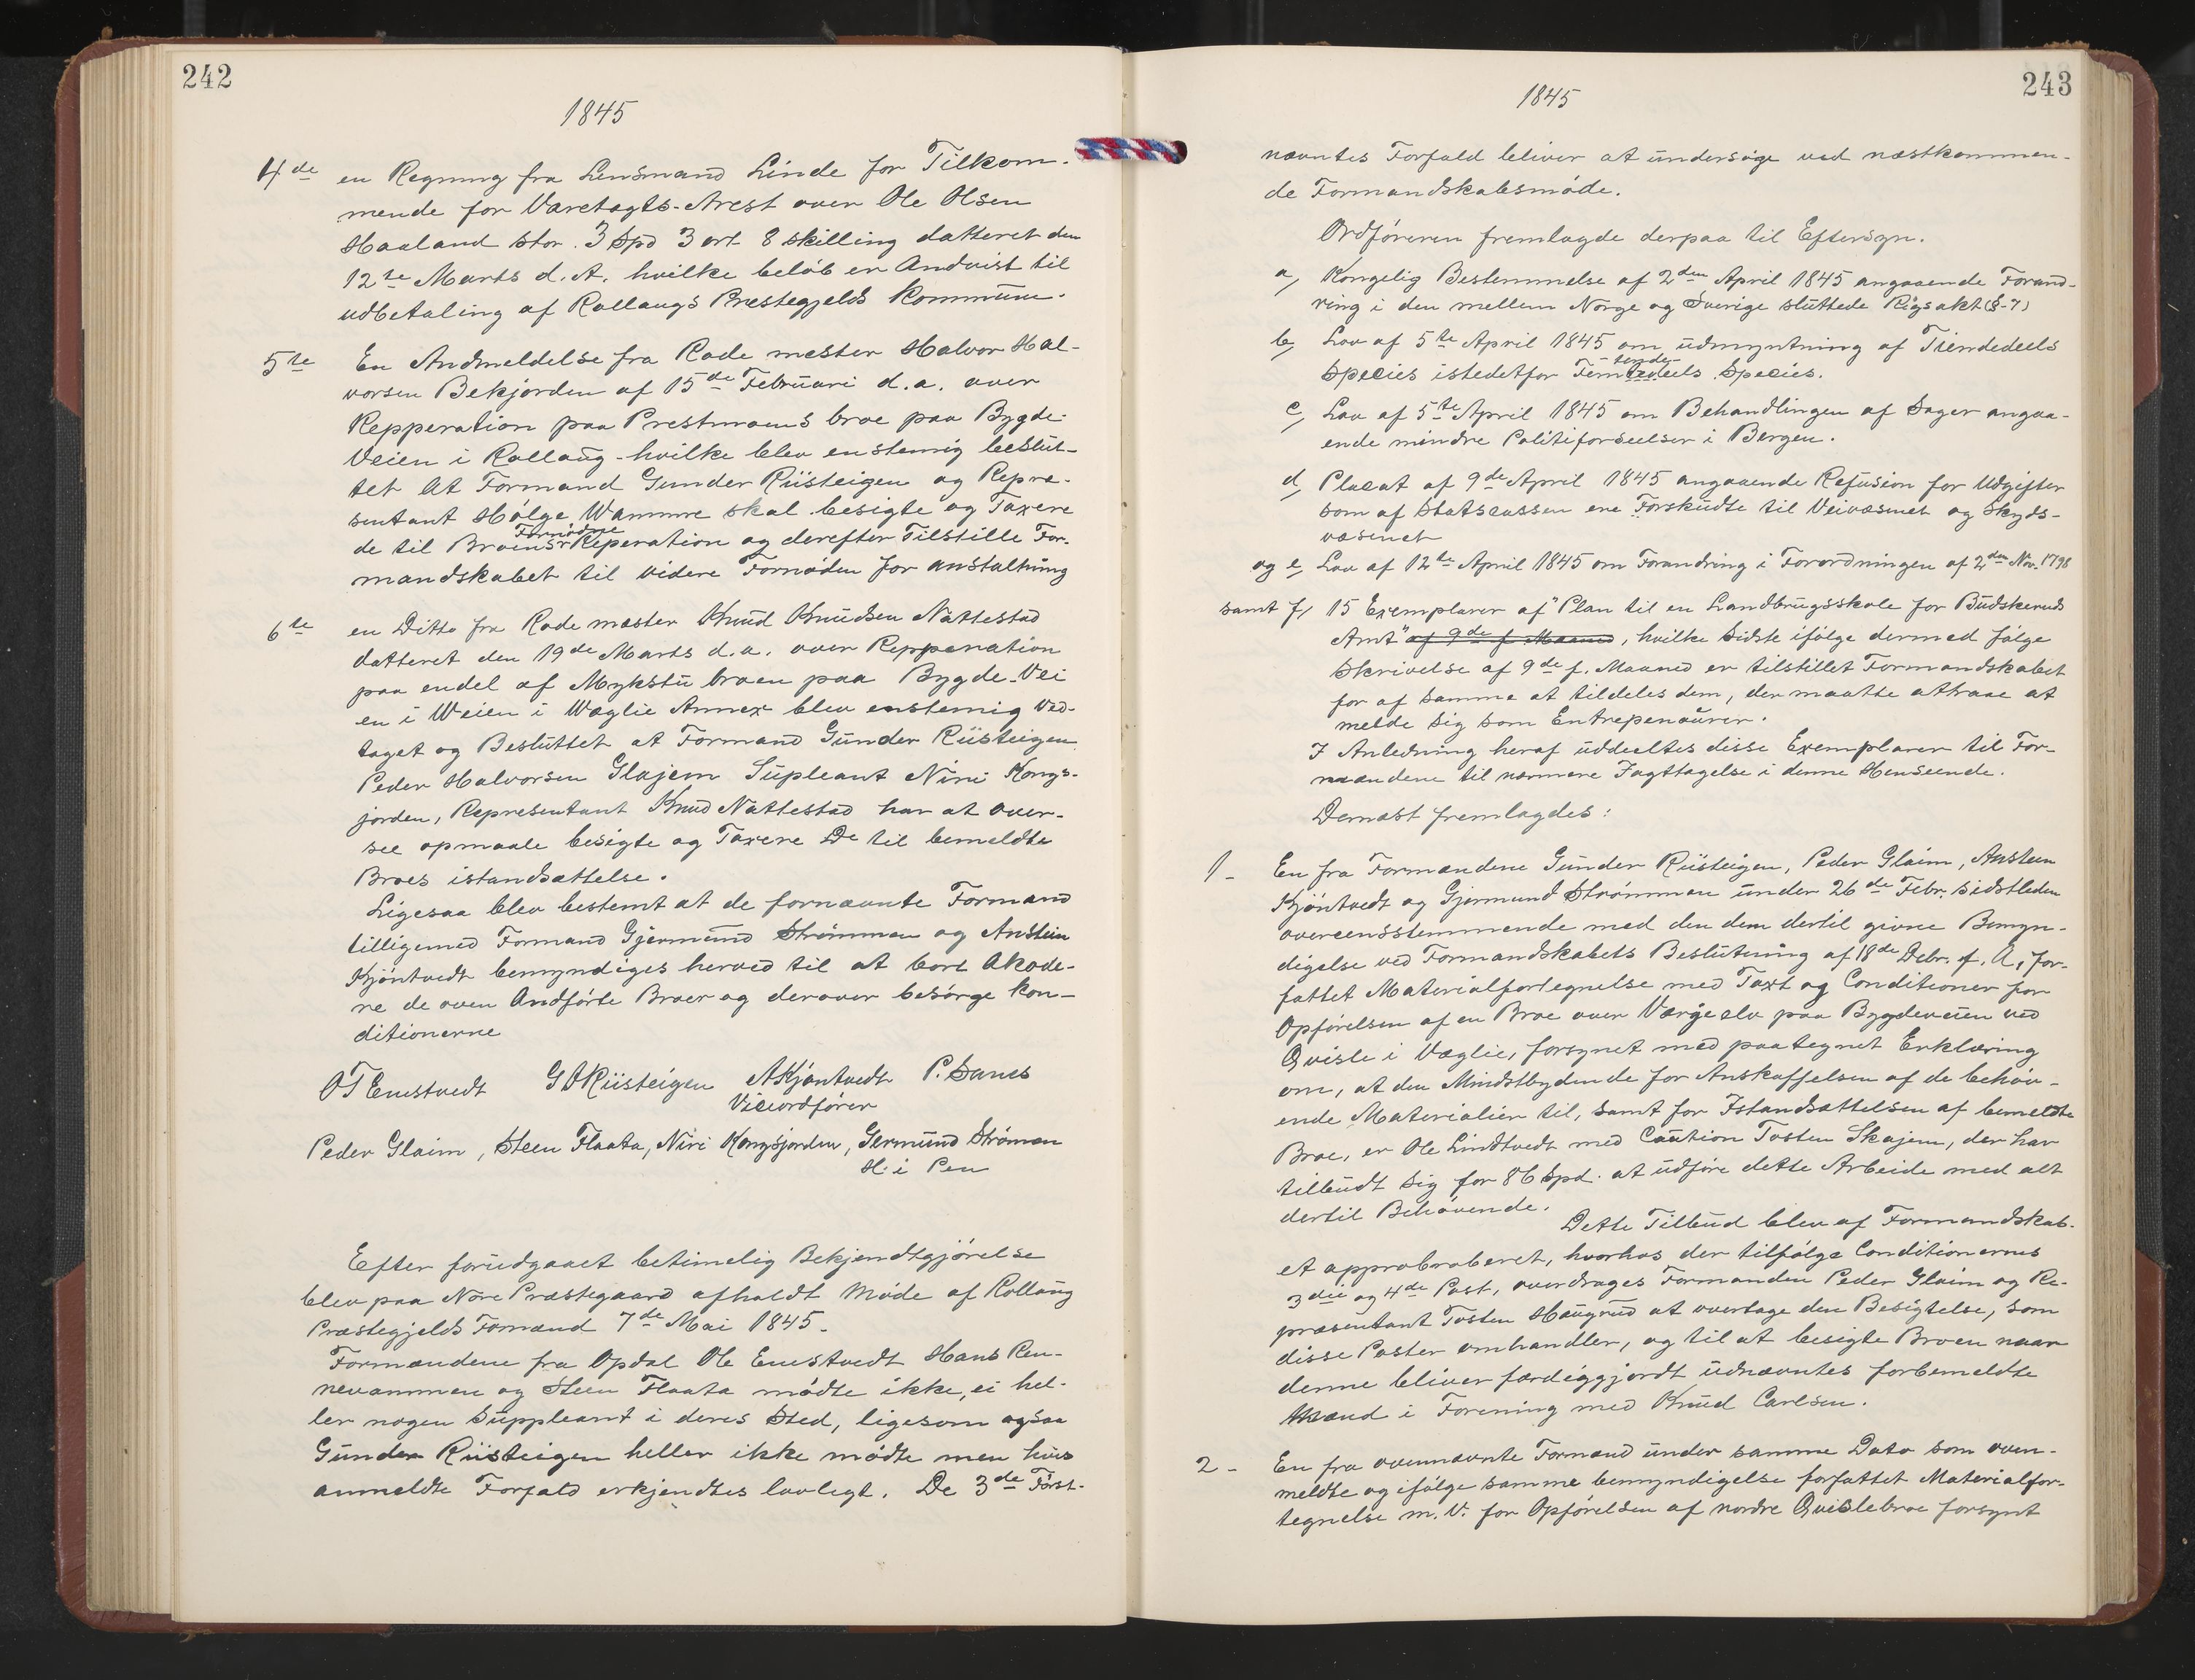 242
1845
4de en Regning fra Lensmand Linde for Tilkom-
mende for Varetagts-Arest over Ole Olsen
Haaland stor. 3 Spd 3 ort 8 skilling datteret den
12te Marts d.A. hvilke beløb er Andvist til
udbetaling af Rollaugs Prestegjelds Kommune.
5te En Andmeldelse fra Rode mester Halvor Hal-
vorsen Bekjorden af 15de Februari d.a. over
Repperation paa Prestmoens broe paa Bygde-
Veien i Rollaug - hvilke blev enstemig beslut-
tet At Formand Gunder Riisteigen og Repre-
sentant Hølge Wammre skal besigte og Taxere
Fornødne
de til Broens Reperation og derefter Tilstille For-
mandskabet til videre Fornøden for anstaltning
6te en Ditto fra Rode mæster Knud Knudsen Nattestad
datteret den 19de Marts d.a. over Repperation
paa endel af Mykstu broen paa Bygde-Vei
en i Weien i Wæglie Annex blev enstemig Ved-
taget og Besluttet at Formand Gunder Riisteigen
Peder Halvorsen Glajem Supleant Niri Kongs-
jorden, Representant Knud Nattestad har at over-
see opmaale besigte og Taxere De til bemeldte
Broes istandsættelse.
Ligesaa blev bestemt at de fornævnte Formænd
tilligemed Formand Gjermund Strømmen og Anstein
Kjøntvedt bemyndiges herved til at bort Akode-
re de oven Andførte Broer og derover besørge kon-
ditionerne
OT Enstvedt GO Riisteigen AKjøntvedt P. Sanes
Viceordfører
Peder Glaim, Steen Flaata, Niri Kongsjorden, Germund Strømen
H. i Pen
Efter forudgaaet betimelig Bekjendtgjørelse
blev paa Nore Præstegaard afholdt Møde af Rollaug
Præstegjelds Formænd 7de Mai 1845.
Formændene fra Opdal Ole Enstvedt Hans Ren-
nevammen og Steen Flaata mødte ikke, ei hel-
ler nogen Suppleant i deres Sted, ligesom ogsaa
Gunder Riisteigen heller ikke mødte men hvis
anmeldte Forfald erkjendtes lovlegt. De 3de Først-
243
1845
nævntes Forfald bliver at undersøge ved næstkommen-
de Formandskabsmøde.
Ordføreren fremlagde derpaa til Eftersyn.
a, Kongelig Bestemmelse af 2den April 1845 angaaende Forand-
ring i den mellem Norge og Sverige sluttede Rigsakt (§-7)
b, Lov af 5te April 1845 om udmyntning af Tiendedeels
-tende-
Species istedetfor Femtedeels Species.
c, Lov af 5te April 1845 om Behandlingen af Sager angaa-
ende mindre Politiforseelser i Bergen.
d, Placat af 9de April 1845 angaaende Refusion for Udgifter
som af Statscassen ere Forskudte til Veivæsnet og Skyds-
væsenet
og e, Lov af 12te April 1845 om Forandring i Forordningen af 2den Nov. 1798
samt f, 15 Exemplarer af "Plan til en Landbrugsskole for Budskeruds
Amt" af 9de f. Maaned, hvilke Sidste ifølge dermed følge
Skrivelse af 9de f. Maaned er tilstillet Formandskabet
for af samme at tildeles dem, der maatte attraae at
melde sig som Entrepenøurer.
I Anledning heraf uddeeltes disse Exemplarer til For-
mændene til nærmere Iagttagelse i denne Henseende.
Dernæst fremlagdes:
1 - En fra Formændene Gunder Riisteigen, Peder Glaim, Anstein
Kjøntvedt og Gjermund Strømmen under 26de Febr. sidstleden
overeensstemmende med den dem dertil givne Bemyn-
digelse ved Formandskabets Beslutning af 18de Debr. f. A, for-
fattet Materialfortegnelse med Taxt og Conditioner for
Opførelsen af en Broe over Værgeelv paa Bygdeveien ved
Qvisle i Væglie, forsynet med paategnet Erklæring
om, at den Mindstbydende for Anskaffelsen af de behøv-
ende Materialier til, samt for Istandsættelsen af bemeldte
Broe, er Ole Lindtvedt med Caution Tosten Skajem, der har
tilbudt sig for 86 Spd. at udføre dette Arbeide med alt
dertil Behøvende.
Dette Tilbud blev af Formandskab-
et approbroberet, hvorhos der tilfølge Conditionernes
3die og 4de Post, overdrages Formanden Peder Glaim og Re-
præsentant Tosten Haugrud at overtage den Besigtelse, som
disse Poster omhandler, og til at besigte Broen naar
denne bliver færdiggjordt udnævntes forbemeldte
Mænd i Forening med Knud Carlsen.
2 - En fra ovennævnte Formænd under samme Dato som oven-
meldte og ifølge samme bemyndigelse forfattet Materialfor-
tegnelse m.V. for Opførelsen af nordre Qvislebroe forsynt